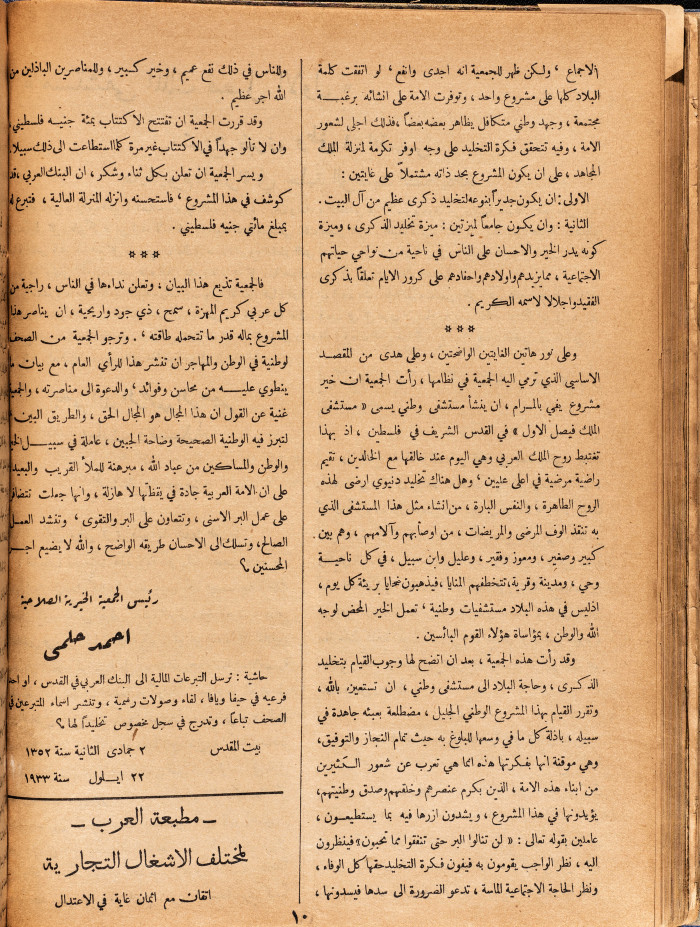 الاجماع ، ولكن ظهر للجمعية انه اجدى وانفع ، لو اتفقت كلمة
البلاد كلها على مشروع واحد ، وتوفرت الامة على انشائه برغبــة
مجتمعة ، وجهد وطني متكافل يظاهر بعضه بعضاً ، فذلك اجلى لشعور
الامة ، وفيه تتحقق فكرة التخليد على وجه اوفر تكرمة لمنزلة الملك
المجاهد ، على ان يكون المشروع بحد ذاته مشتملاً على غايتين :
الاولى : ان يكون جديراً بنوعه لتخليد ذكرى عظيم من آل البيت .
الثانية : وان يكون جامعاً لميزتين : ميزة تخليد الذكرى ، وميزة
كونه يدر الخير والاحسان على الناس في ناحية من نواحي حياتهم
الاجتماعية ، مما يزيدهم واولادهم واحفادهم على كرور الايام تعلقاً بذكرى
الفقيد واجلالا لاسمه الكريم .
* * *
وعلى نور هاتين الغايتين الواضحتين ، وعلى هدى من المقصد
الاساسي الذي ترمي اليه الجمعية في نظامها ، رأت الجمعية ان خير
مشروع يفي بالمرام ، ان ينشأ مستشفى وطني يسمى « مستشفى
الملك فيصل الاول » في القدس الشريف في فلسطين ، اذ بهذا
تغتبط روح الملك العربي وهي اليوم عند خالقها مع الخالدين ، تقيم
راضية مرضية في اعلى عليين ، وهل هناك تخليد دنيوي ارضى لهذه
الروح الطاهرة ، والنفس البارة ، من انشاء مثل هذا المستشفى الذي
به تنقذ الوف المرضى والمريضات ، من اوصابهم وآلامهم ، وهم بين
كبير وصغير ، ومعوز وفقير ، وعليل وابن سبيل ، في كل ناحيــة
وحي ، ومدينة وقرية ، تتخطفهم المنايا ، فيذهبون ضحايا بريئة كل يوم ،
اذ ليس في هذه البلاد مستشفيات وطنية ، تعمل الخير المحض لوجه
الله والوطن ، بمؤاساة هؤلاء القوم البائسين .
وقد رأت هذه الجمعية ، بعد ان اتضح لها وجوب القيام بتخليد
الذكرى ، وحاجة البلاد الى مستشفى وطني ، ان تستعين بالله ،
وتقرر القيام بهذا المشروع الوطني الجليل ، مضطلعة بعبئه جاهدة في
سبيله ، باذلة كل ما في وسعها للبلوغ به حيث تمام النجاز والتوفيق ،
وهي موقنة انها بفكرتها هذه انما هي تعرب عن شعور الكثيرين
من ابناء هذه الامة ، الذين بكرم عنصرهم وخلقهم وصدق وطنيتهم ،
يؤيدونها في هذا المشروع ، ويشدون ازرها فيه بما يستطيعــون ،
عاملين بقوله تعالى : « لن تنالوا البر حتى تنفقوا مما تحبون » فينظرون
اليه ، نظر الواجب يقومون به فيفون فكرة التخليد حقها كل الوفاء ،
ونظر الحاجة الاجتماعية الماسة ، تدعو الضرورة الى سدها فيسدونها ،
وللناس في ذلك نفع عميم ، وخير كبير ، وللمناصرين الباذلين من
الله اجر عظيم .
وقد قررت الجمعية ان تفتتح الاكتتاب بمئة جنيــه فلسطيني ،
وان لا تألو جهداً في الاكتتاب غير مرة كلما استطاعت الى ذلك سبيلا .
ويسر الجمعية ان تعلن بكل ثناء وشكر ، ان البنك العربي ، قد
كوشف في هذا المشروع ، فاستحسنه وانزله المنزلة العالية ، فتبرع له
بمبلغ مائتي جنيه فلسطيني .
* * *
فالجمعية تذيع هذا البيان ، وتعلن نداءها في الناس ، راجية من
كل عربي كريم المهزة ، سمح ، ذي جود واريحية ، ان يناصر هذا
المشروع بماله قدر ما تتحمله طاقته ، . وترجو الجمعية من الصحف
لوطنية في الوطن والمهاجر ان تنشر هذا للرأي العام ، مع بيان ما
ينطوي عليــه من محاسن وفوائد ، والدعوة الى مناصرته ، والجمعية
غنية عن القول ان هذا المجال هو المجال الحق ، والطريق البين ،
لتبرز فيه الوطنية الصحيحة وضاحة الجبين ، عاملة في سبيــل الخير
والوطن والمساكين من عباد الله ، مبرهنة للملأ القريب والبعيد
على ان الامة العربية جادة في يقظتها لا هازلة ، وانها جعلت تتضافر
على عمل البر الاسنى ، وتتعاون على البر والتقوى ، وتنشد العمــل
الصالح ، وتسلك الى الاحسان طريقه الواضح ، والله لا يضيع اجــر
المحسنين ؟
رئيس الجمعية الخيرية الصلاحية
احمد حلمي
حاشية : ترسل التبرعات المالية الى البنك العربي في القدس ، او احد
فرعيه في حيفا ويافا ، لقاء وصولات رسمية ، وتنشر اسماء المتبرعين في
الصحف تباعاً ، وتدرج في سجل مخصوص تخليداً لها ؟
بيت المقدس ٢ جمادى الثانية سنة ١٣٥٢
٢٢ ايــلول سنة ١٩٣٣
– مطبعة العرب –
لمختلف الاشغال التجارية
اتقان مع اثمان غاية في الاعتدال
١٠